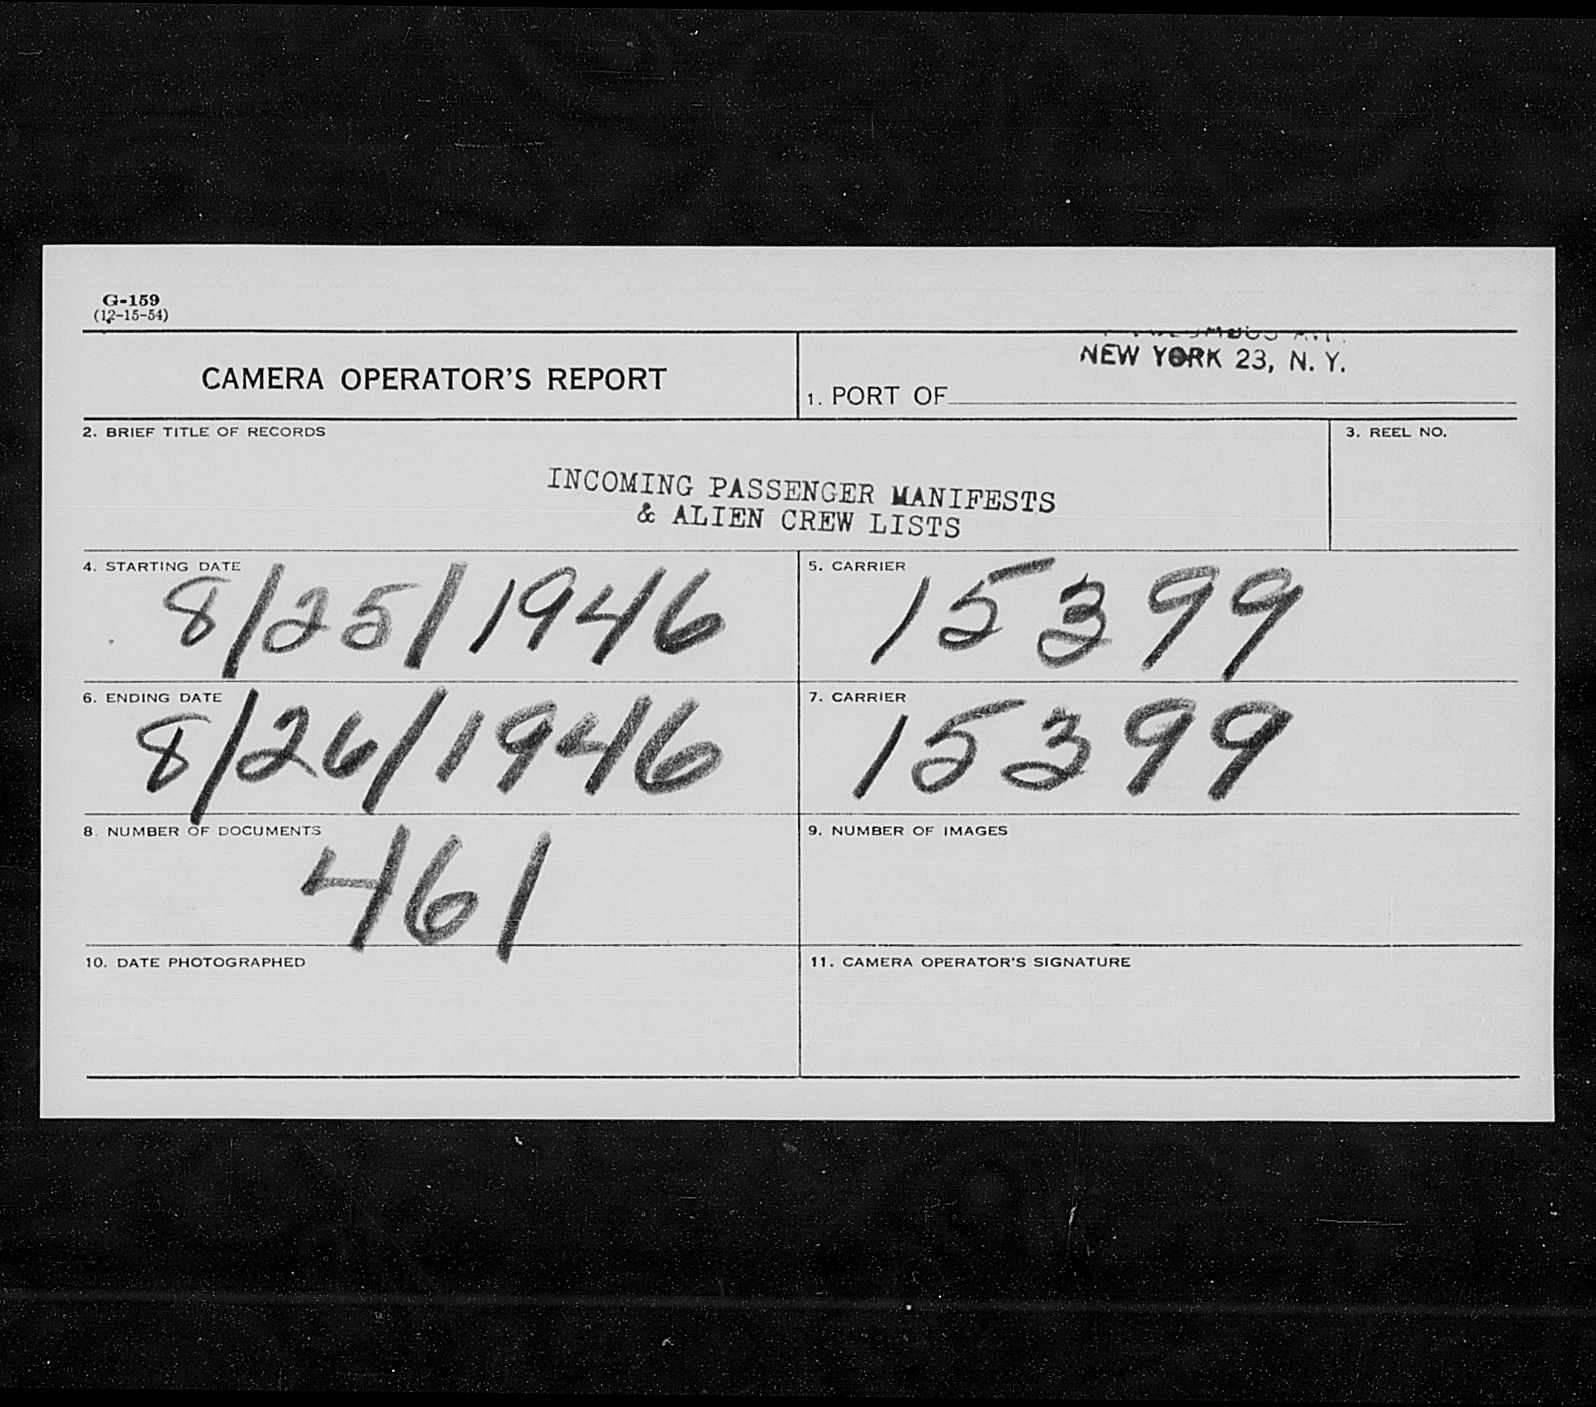 G-159
(12-15-54)
CAMERA OPERATOR'S REPORT
NEW YORK 23, N. Y.
1. PORT OF
2. BRIEF TITLE OF RECORDS
3. REEL NO.
INCOMING PASSENGER MANIFESTS
& ALIEN CREW LISTS
4. STARTING DATE
8/25/1946
5. CARRIER
15399
6. ENDING DATE
8/26/1946
7. CARRIER
15399
8. NUMBER OF DOCUMENTS
461
9. NUMBER OF IMAGES
10. DATE PHOTOGRAPHED
11. CAMERA OPERATOR'S SIGNATURE